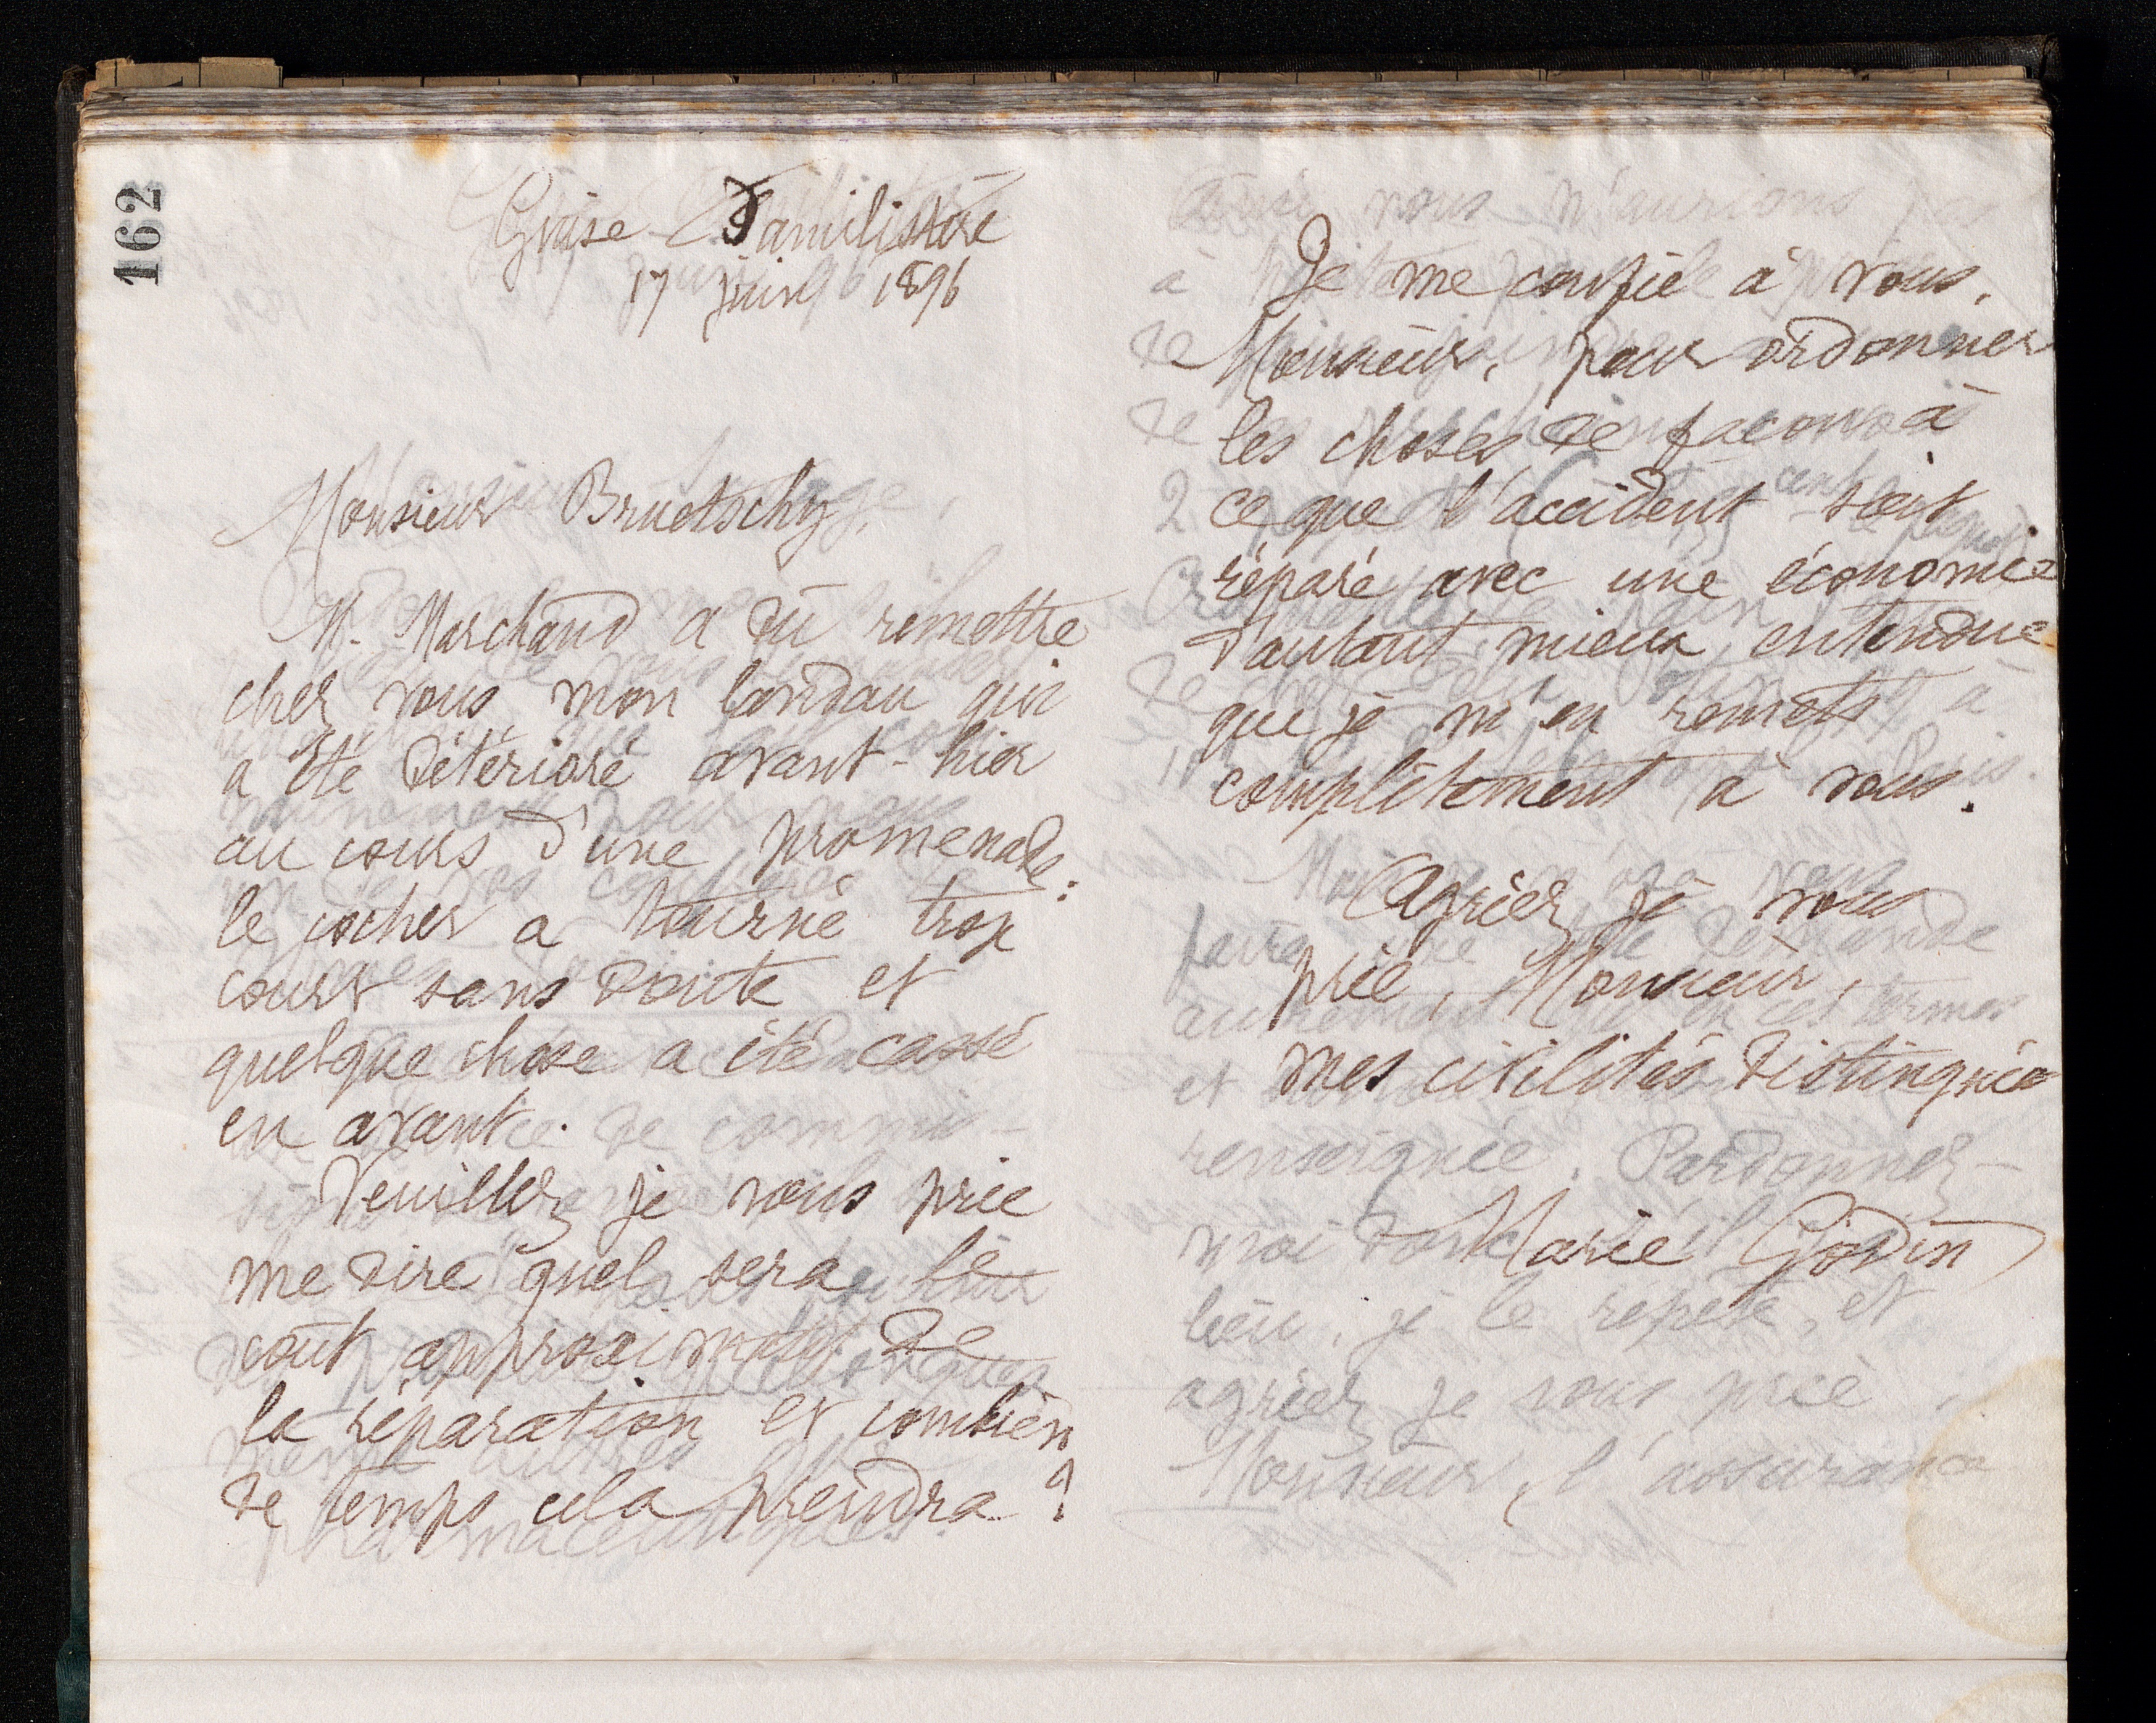 162
Guise Familistère
17 juin 1896
Monsieur Bruetschy,
M. Marchand a dû remettre
chez vous mon landau qui
a été détérioré avant-hier
au cours d'une promenade :
le cocher a tourné trop
court sans doute et
quelque chose a été cassé
en avant.
Veuillez je vous prie
me dire quel sera le
coût approximatif de
la réparation et combien
de temps cela prendra ?
Je me confie à vous,
Monsieur, pour ordonner
les choses de façon à
ce que l'accident soit
réparé avec une économie
d'autant mieux entendue
que je m'en remets
complètement à vous.
Agréez je vous
prie, Monsieur,
mes civilités distinguées
Marie Godin